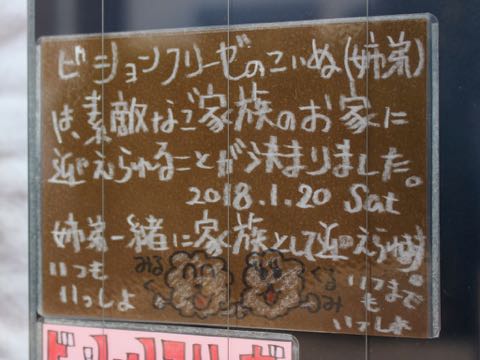 ビションフリーゼのこいぬ(姉弟)
は、素敵なご家族のお家に
迎えられることが決まりました。
2018.1.20 Sat
姉弟一緒に家族として迎えられます
みるく
くるみ
いつも
いっしょ
いつまで
も
いっしょ
ビションフリーゼ